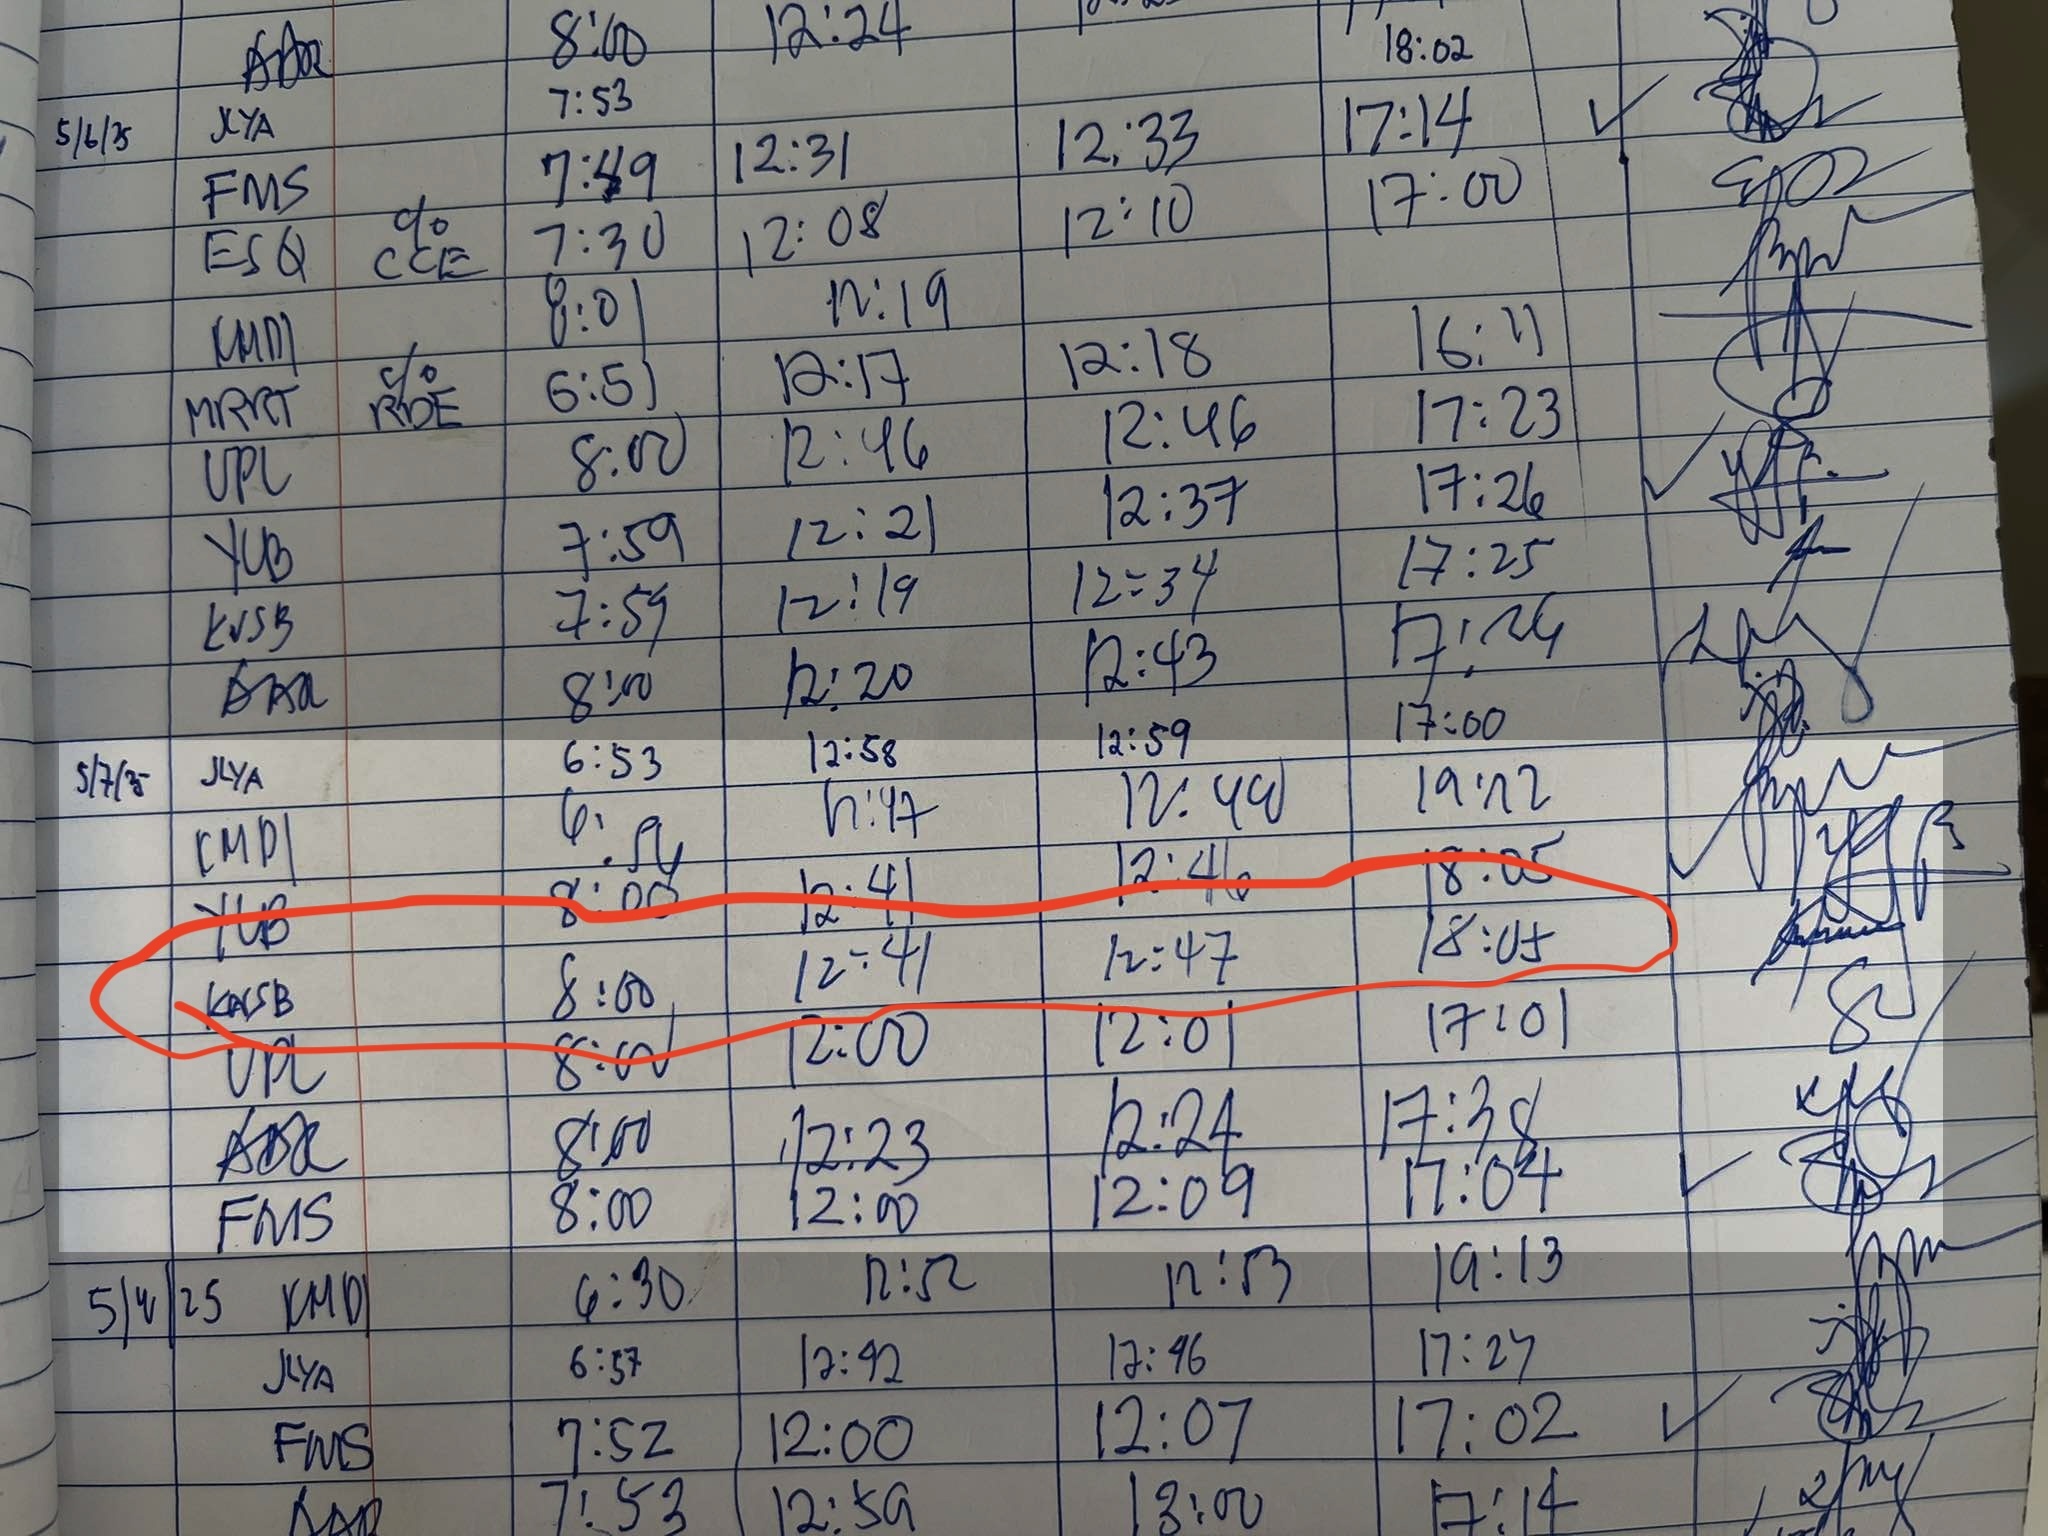 8:00 12:24
18:02
5/6/25 JLYA 7:53
FMS 7:49 12:31 12:33 17:14
ESQ c/o CCE 7:30 12:08 12:10 17:00
KMDI 8:01 12:19
MRRT c/o RDE 6:51 12:17 12:18 16:11
UPL 8:00 12:46 12:46 17:23
YUB 7:59 12:21 12:37 17:26
KNSB 7:59 12:19 12:34 17:25
8:00 12:20 12:43 17:24
5/7/25 JLYA 6:53 12:58 12:59 17:00
KMDI 12:47 19:12
YUB 8:00 12:41 12:46 18:05
8:00 12:41 12:47 18:05
UPL 8:00 12:00 12:01 17:01
8:00 12:23 12:24 17:38
FMS 8:00 12:00 12:09 17:04
KMDI 6:30 12:52 12:53 19:13
JLYA 6:57 12:42 12:46 17:27
FMS 7:52 12:00 12:07 17:02
7:53 12:59 13:00 17:14